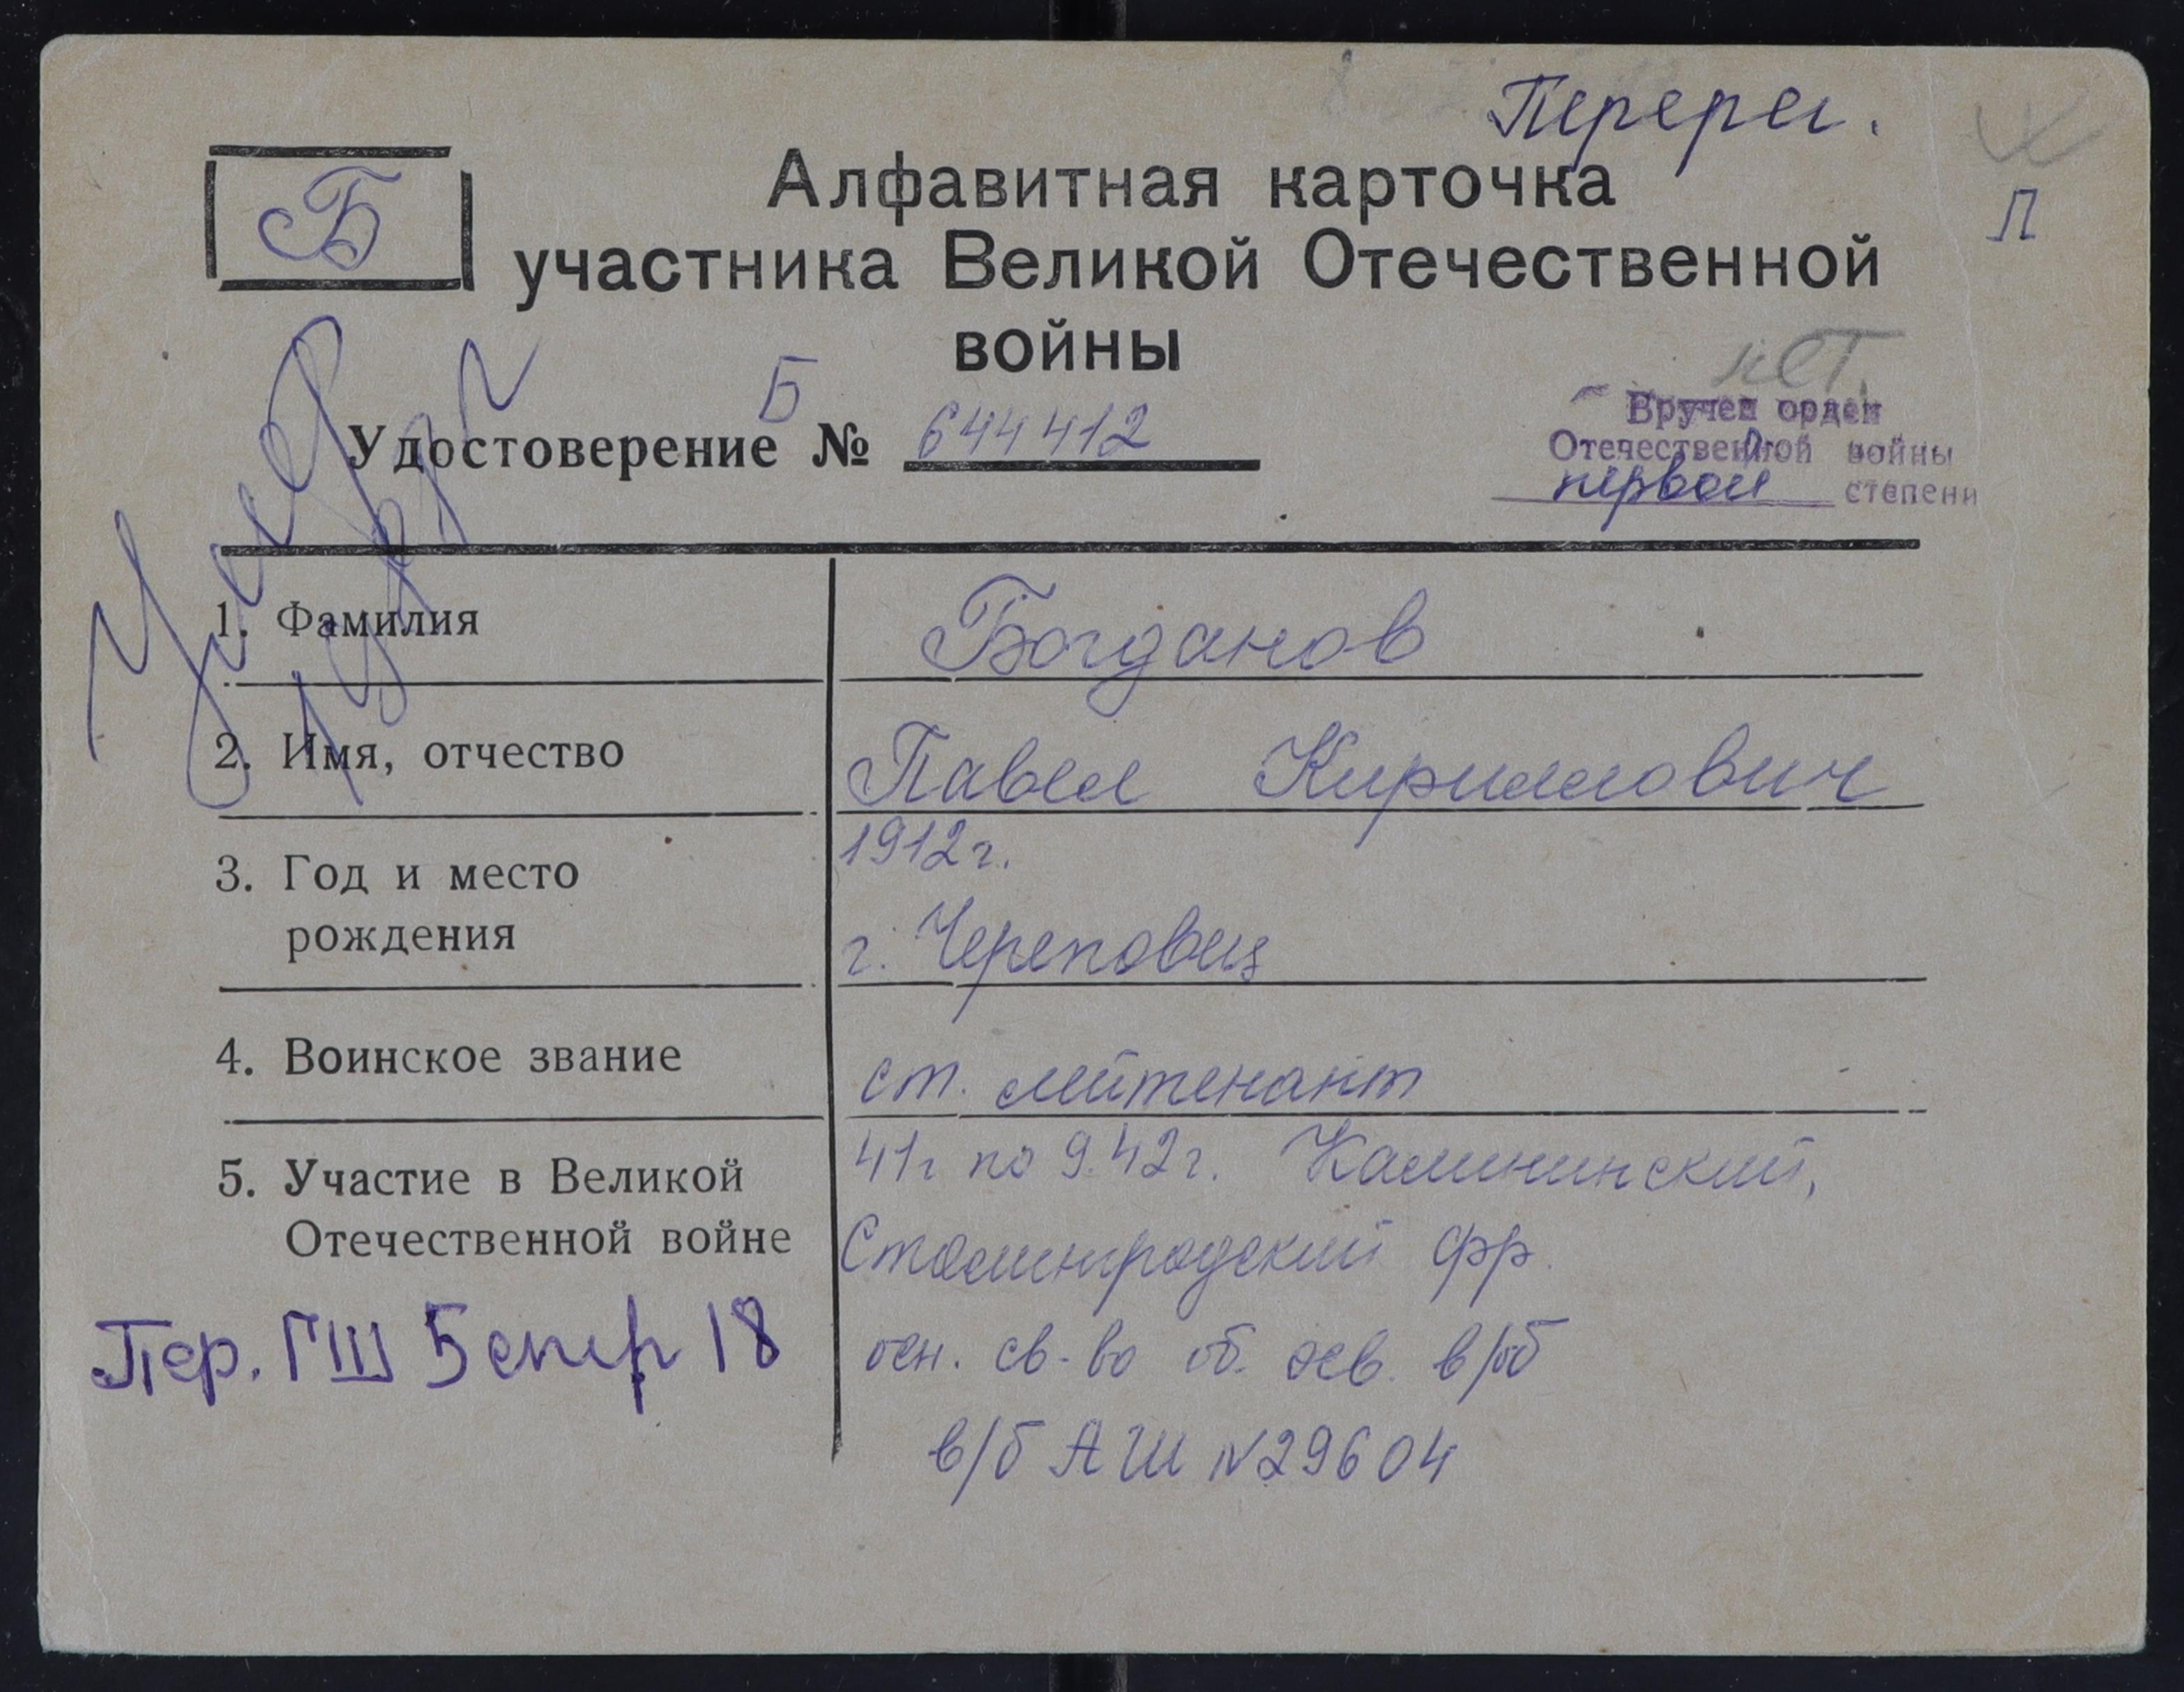 Перерег.
Б
Алфавитная карточка
Л
участника Великой Отечественной
войны
нет.
Б
Удостоверение № 644412
Вручен орден
Отечественной войны
первой степени
1. Фамилия
Богданов
2. Имя, отчество
Павел Кириллович
3. Год и место
рождения
1912 г.
г. Череповец
4. Воинское звание
ст. лейтенант
5. Участие в Великой
Отечественной войне
41г по 9.42г. Калининский,
Сталинградский фр.
осн. св-во об. осв. в/об
в/б АШ №29604
Пер. ГШ 5 18